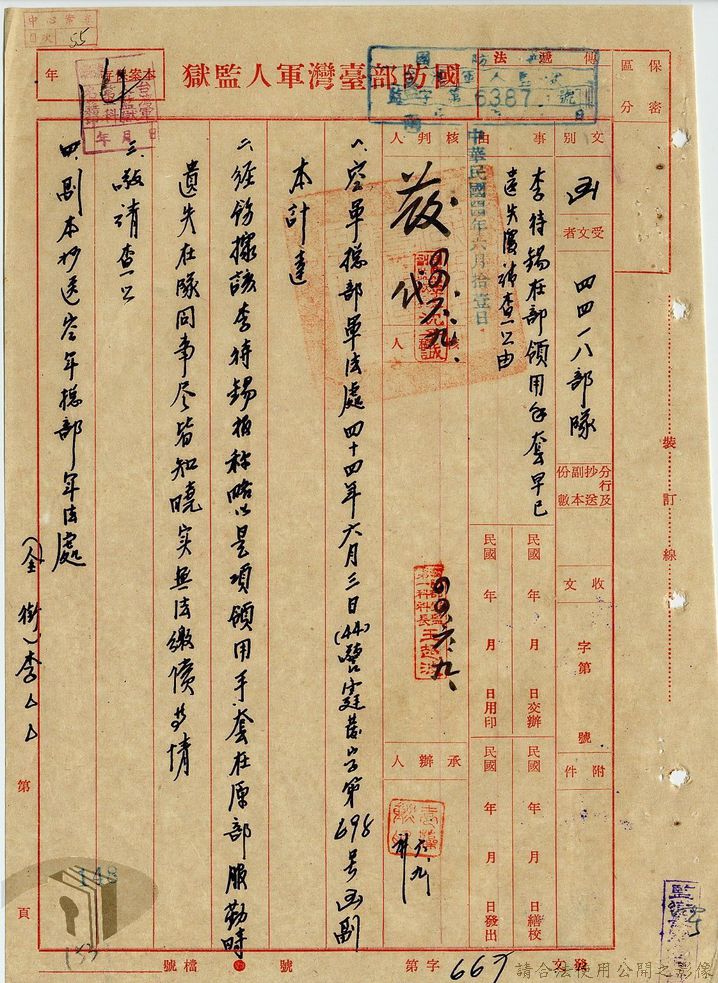 中心案卷
目次 55
國防部臺灣軍人監獄
本案保存
年
傳遞法
字第6387號
保密區分
文別
函
受文者
四四一八部隊
事由
李待錫在部領用手套早已
遺失復請查照由
中華民國四四年六月拾壹日
核判人
代
四四.六.九.
核人
四四.六.九.
承辦人
六.九
分行及抄送副本份數
收文
字第
號
附件
民國 年 月 日交辦
民國 年 月 日用印
民國 年 月 日繕校
民國 年 月 日發出
一、空軍總部軍法處四十四年六月三日(44)
字第698號函副
本計達
二、經飭據該李待錫報稱略以是項領用手套在原部服勤時
遺失在隊同事尽皆知曉实無法繳償等情
三、敬請查照
四、副本抄送空軍總部軍法處
(全銜)李△△
裝訂線
第 頁
148
153
發文 字第 號
檔號
請合法使用公開之影像